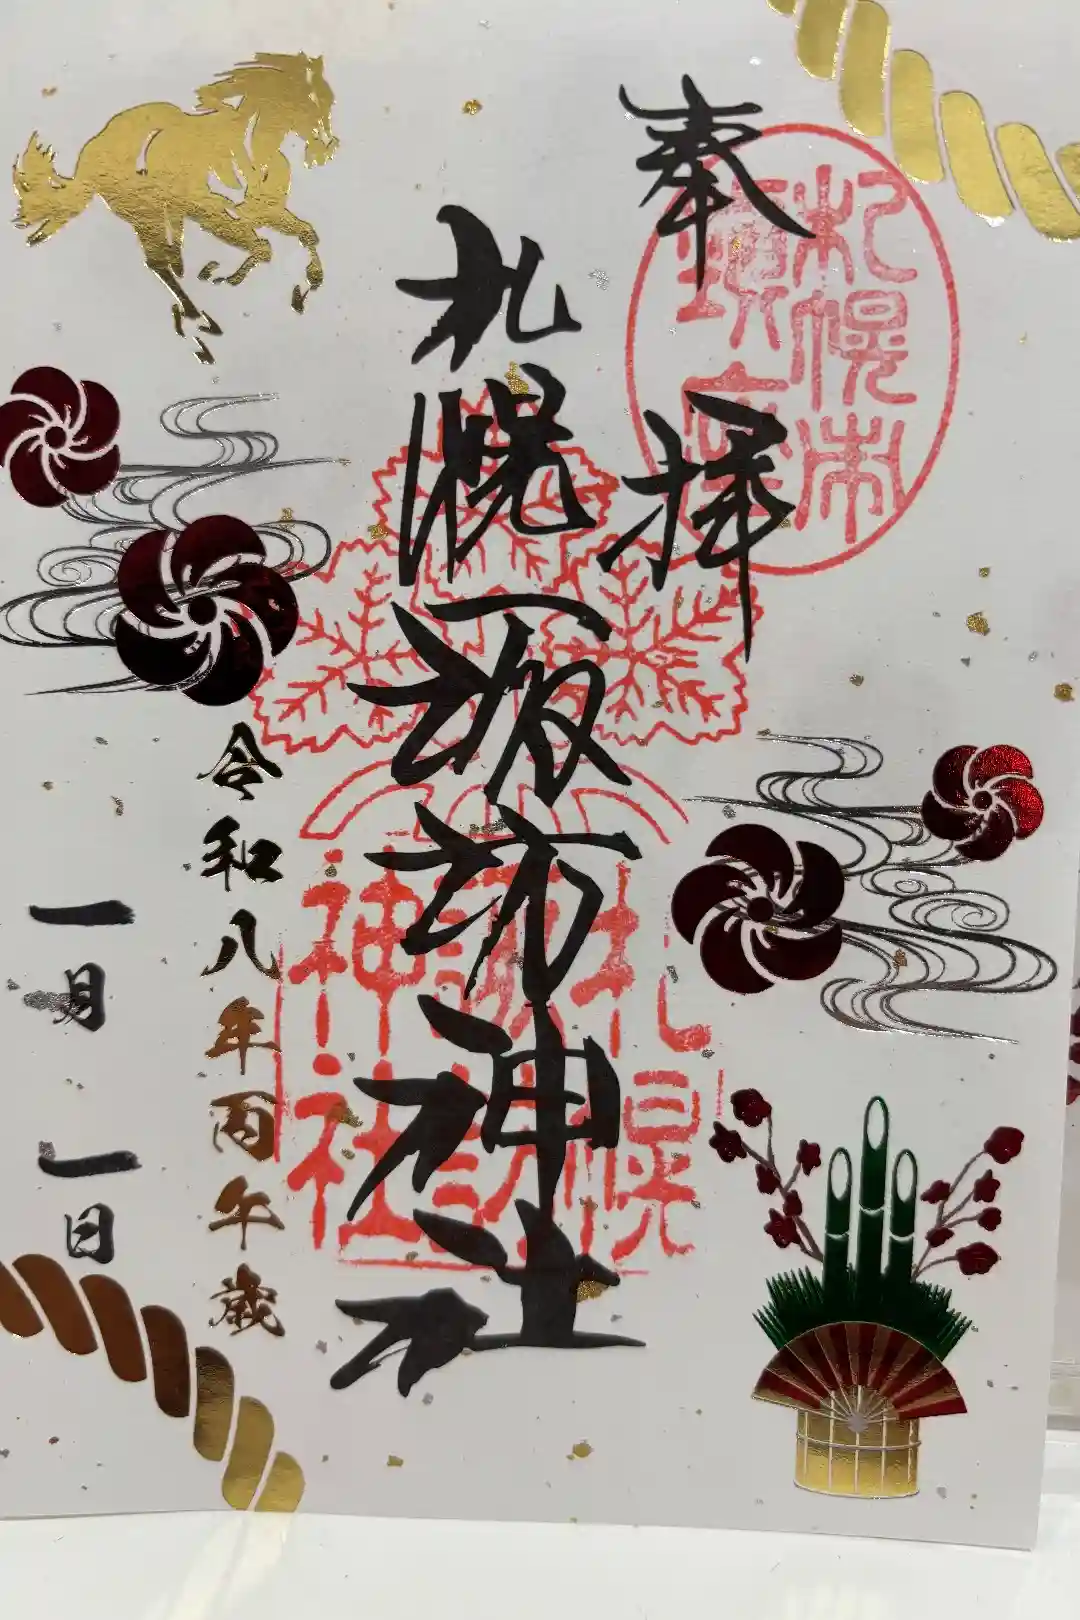 奉拝
札幌市
鎮座
札幌諏訪神社
札幌
諏訪
神社
令和八年丙午歳
一月一日